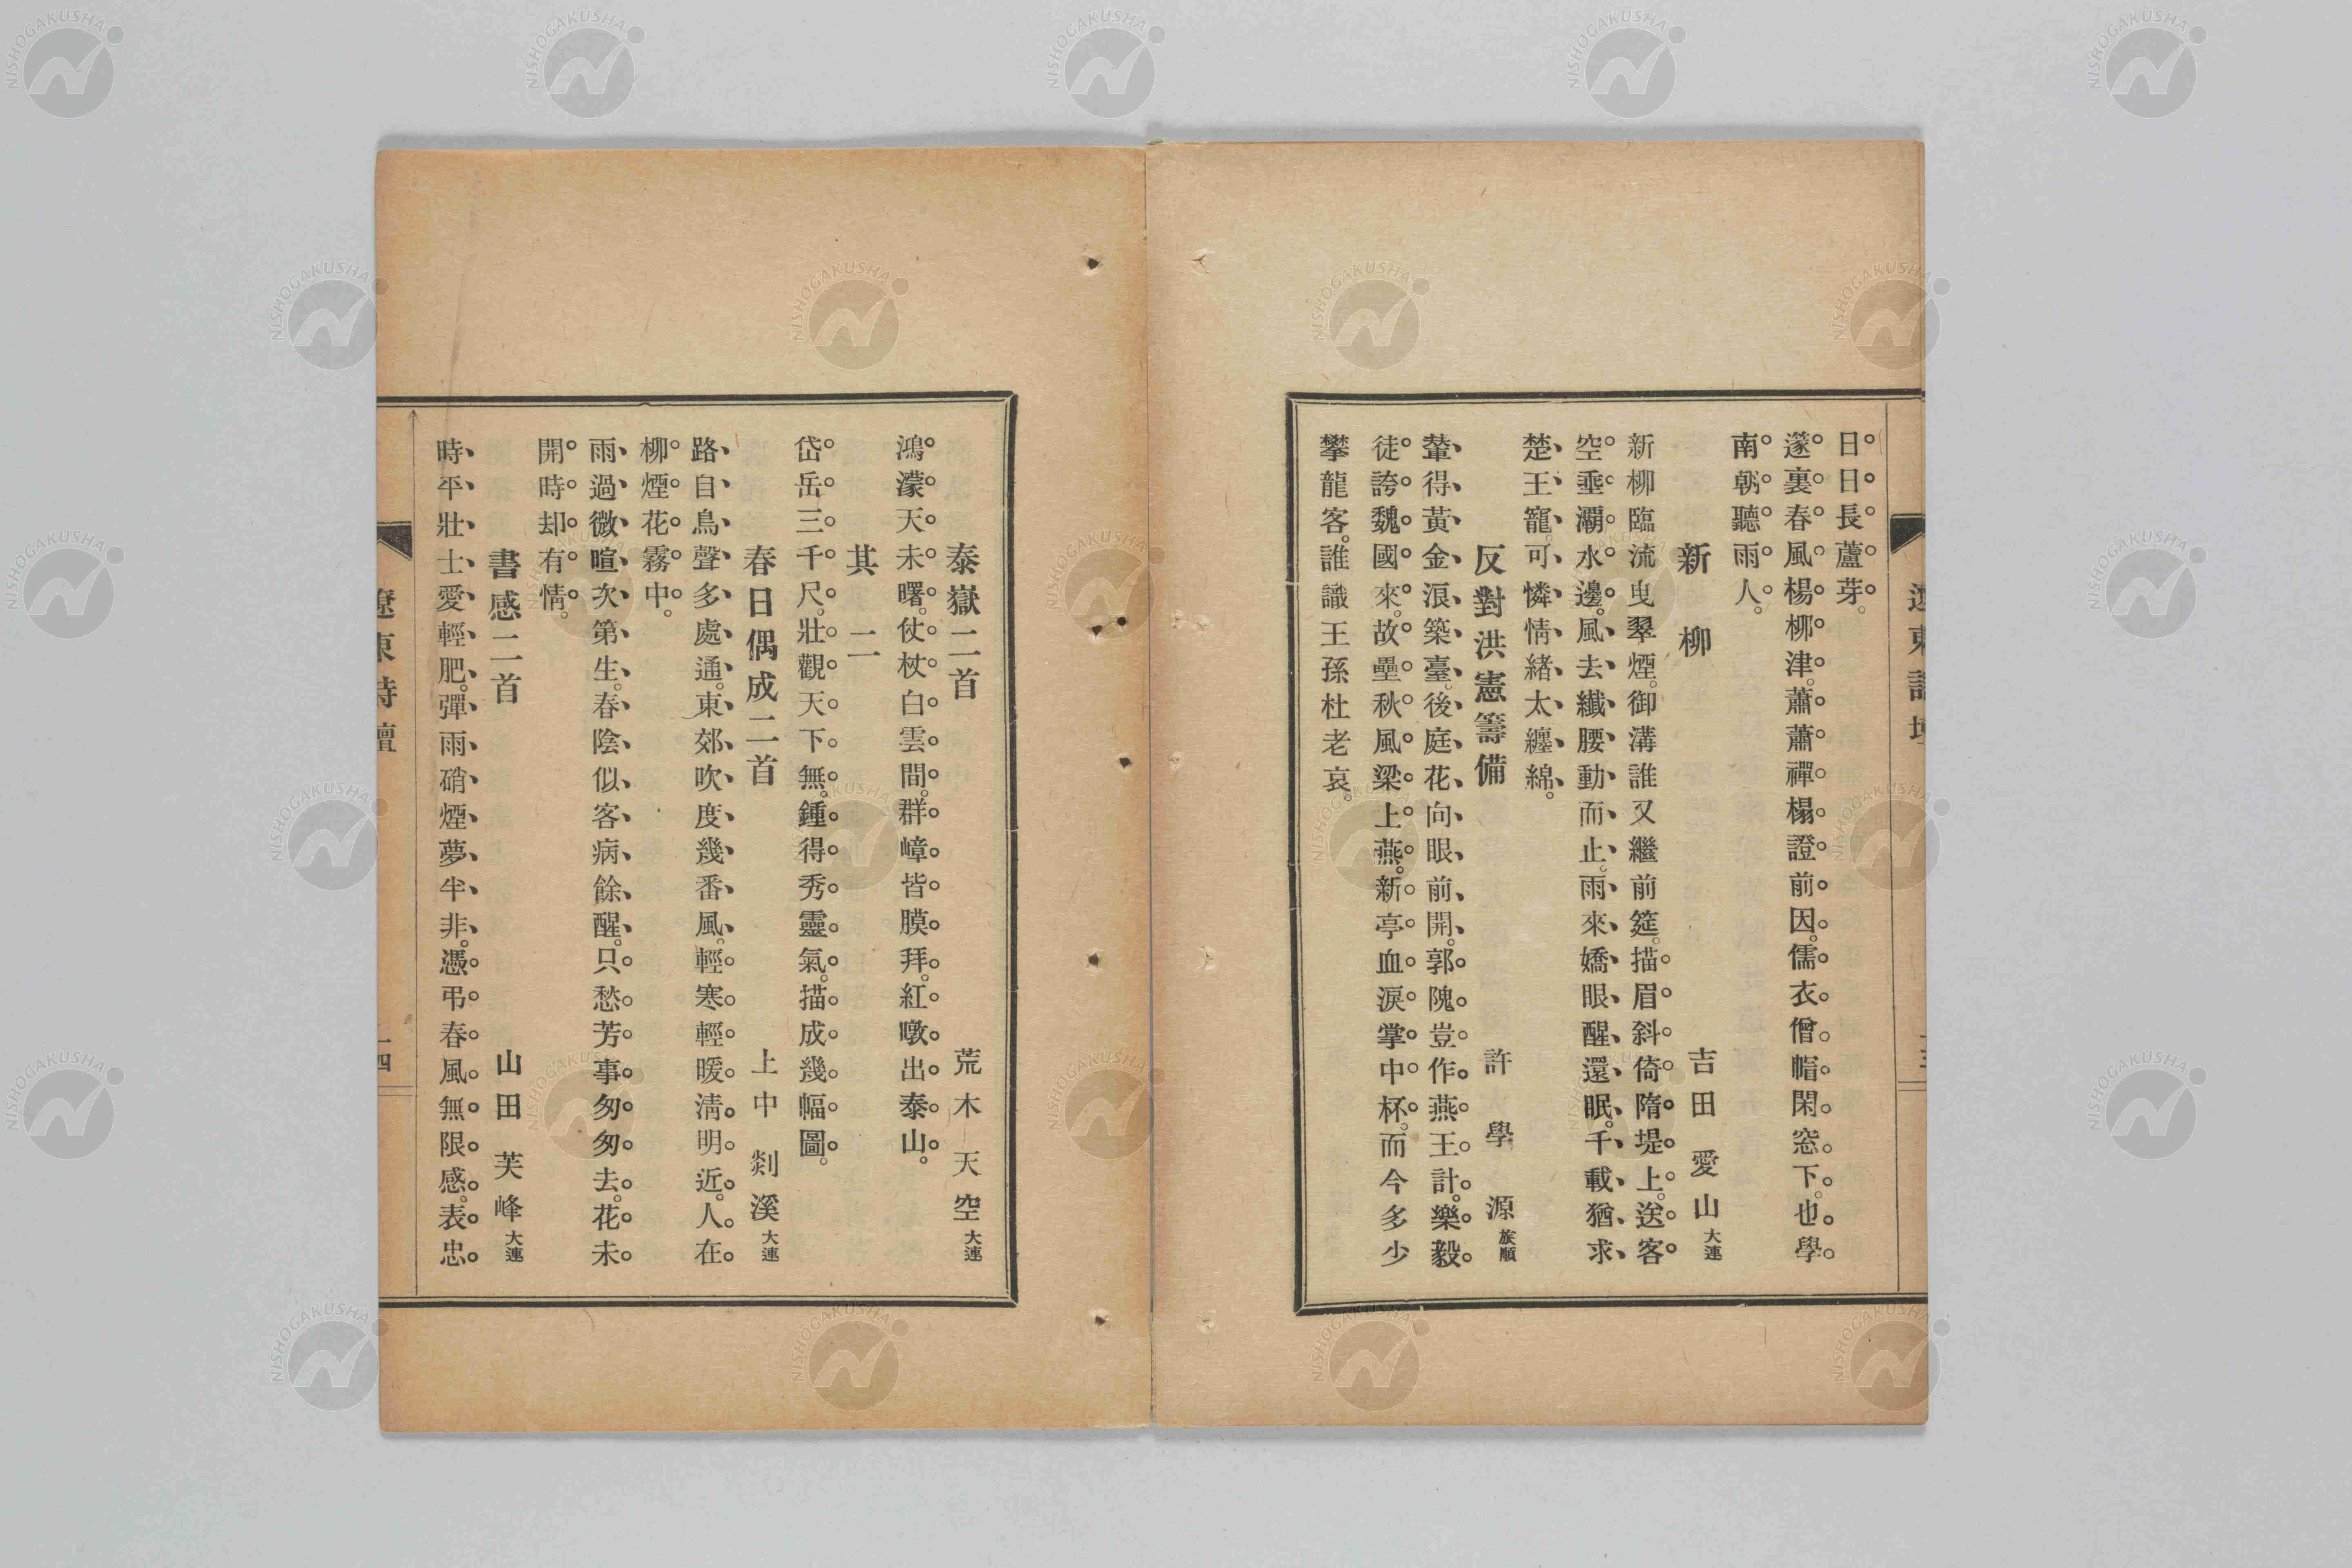 日日長蘆芽。
邃裏春風楊柳津。蕭蕭禪榻證前因。儒衣僧帽閑窓下。也學
南朝聽雨人。
新柳 吉田愛山大連
新柳臨流曳翠煙。御溝誰又繼前筵。描眉斜倚隋堤上。送客
空垂灞水邊。風去纖腰動而止。雨來嬌眼醒還眠。千載猶求
楚王寵。可憐情緒太纏綿。
反對洪憲籌備 許學源旅順
輦得黃金浪築臺。後庭花向眼前開。郭隗豈作燕王計。樂毅
徒誇魏國來。故壘秋風梁上燕。新亭血淚掌中杯。而今多少
攀龍客。誰識王孫杜老哀。
泰嶽二首 荒木天空大連
鴻濛天未曙。仗杖白雲間。群嶂皆膜拜。紅暾出泰山。
其二
岱岳三千尺。壯觀天下無。鍾得秀靈氣。描成幾幅圖。
春日偶成二首 上中剡溪大連
路自鳥聲多處通。東郊吹度幾番風。輕寒輕暖淸明近。人在
柳煙花霧中。
雨過微暄次第生。春陰似客病餘醒。只愁芳事匆匆去。花未
開時却有情。
書感二首 山田芙峰大連
時平壯士愛輕肥。彈雨硝煙夢半非。憑弔春風無限感。表忠
遼東詩壇
一四
NISHOGAKUSHA